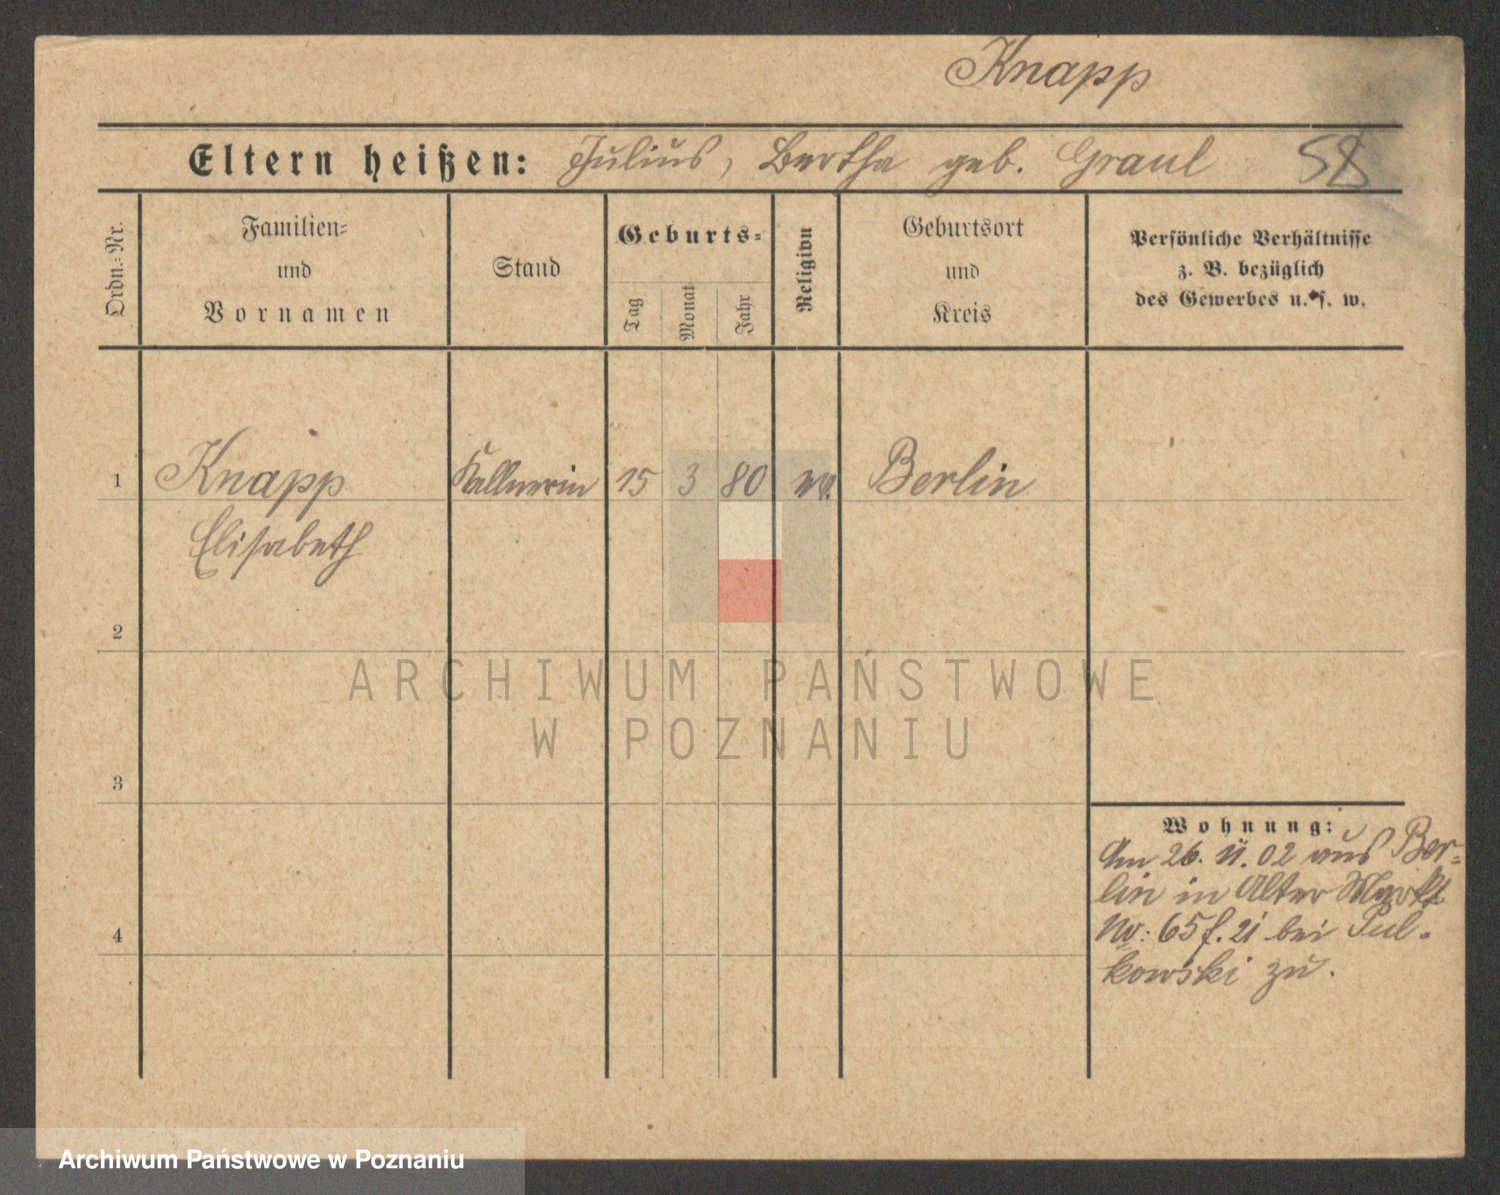 Knapp
Eltern heißen: Julius, Bertha geb. Graul 58
Ordn.=Nr.
Familien=
und
Vornamen
Stand
Geburts=
Tag
Monat
Jahr
Religion
Geburtsort
und
Kreis
Persönliche Verhältnisse
z. B. bezüglich
des Gewerbes u. s. w.
1 Knapp Kellnerin 15 3 80 ev. Berlin
Elisabeth
2
3
4
Wohnung:
Am 26. 11. 02 aus Ber=
lin in Alter Markt
No: 65 bei Pul=
kowski zu.
ARCHIWUM PAŃSTWOWE
W POZNANIU
Archiwum Państwowe w Poznaniu